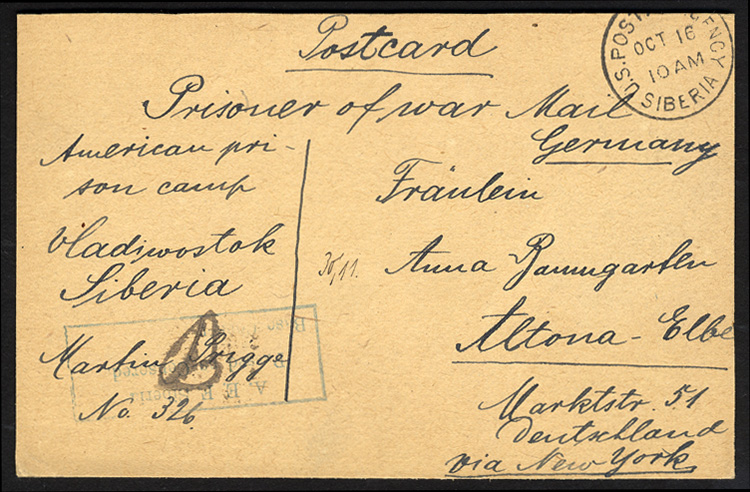 Postcard
U.S. POSTAL AGENCY
OCT 16
10 AM
SIBERIA
Prisoner of war Mail
Germany
American pri-
son camp
Vladiwostok
Siberia
Martin Prigge
No. 326
30/11.
Fräulein
Anna Baumgarten
Altona-Elbe
Marktstr. 51
Deutschland
via New York
A E F Siberia